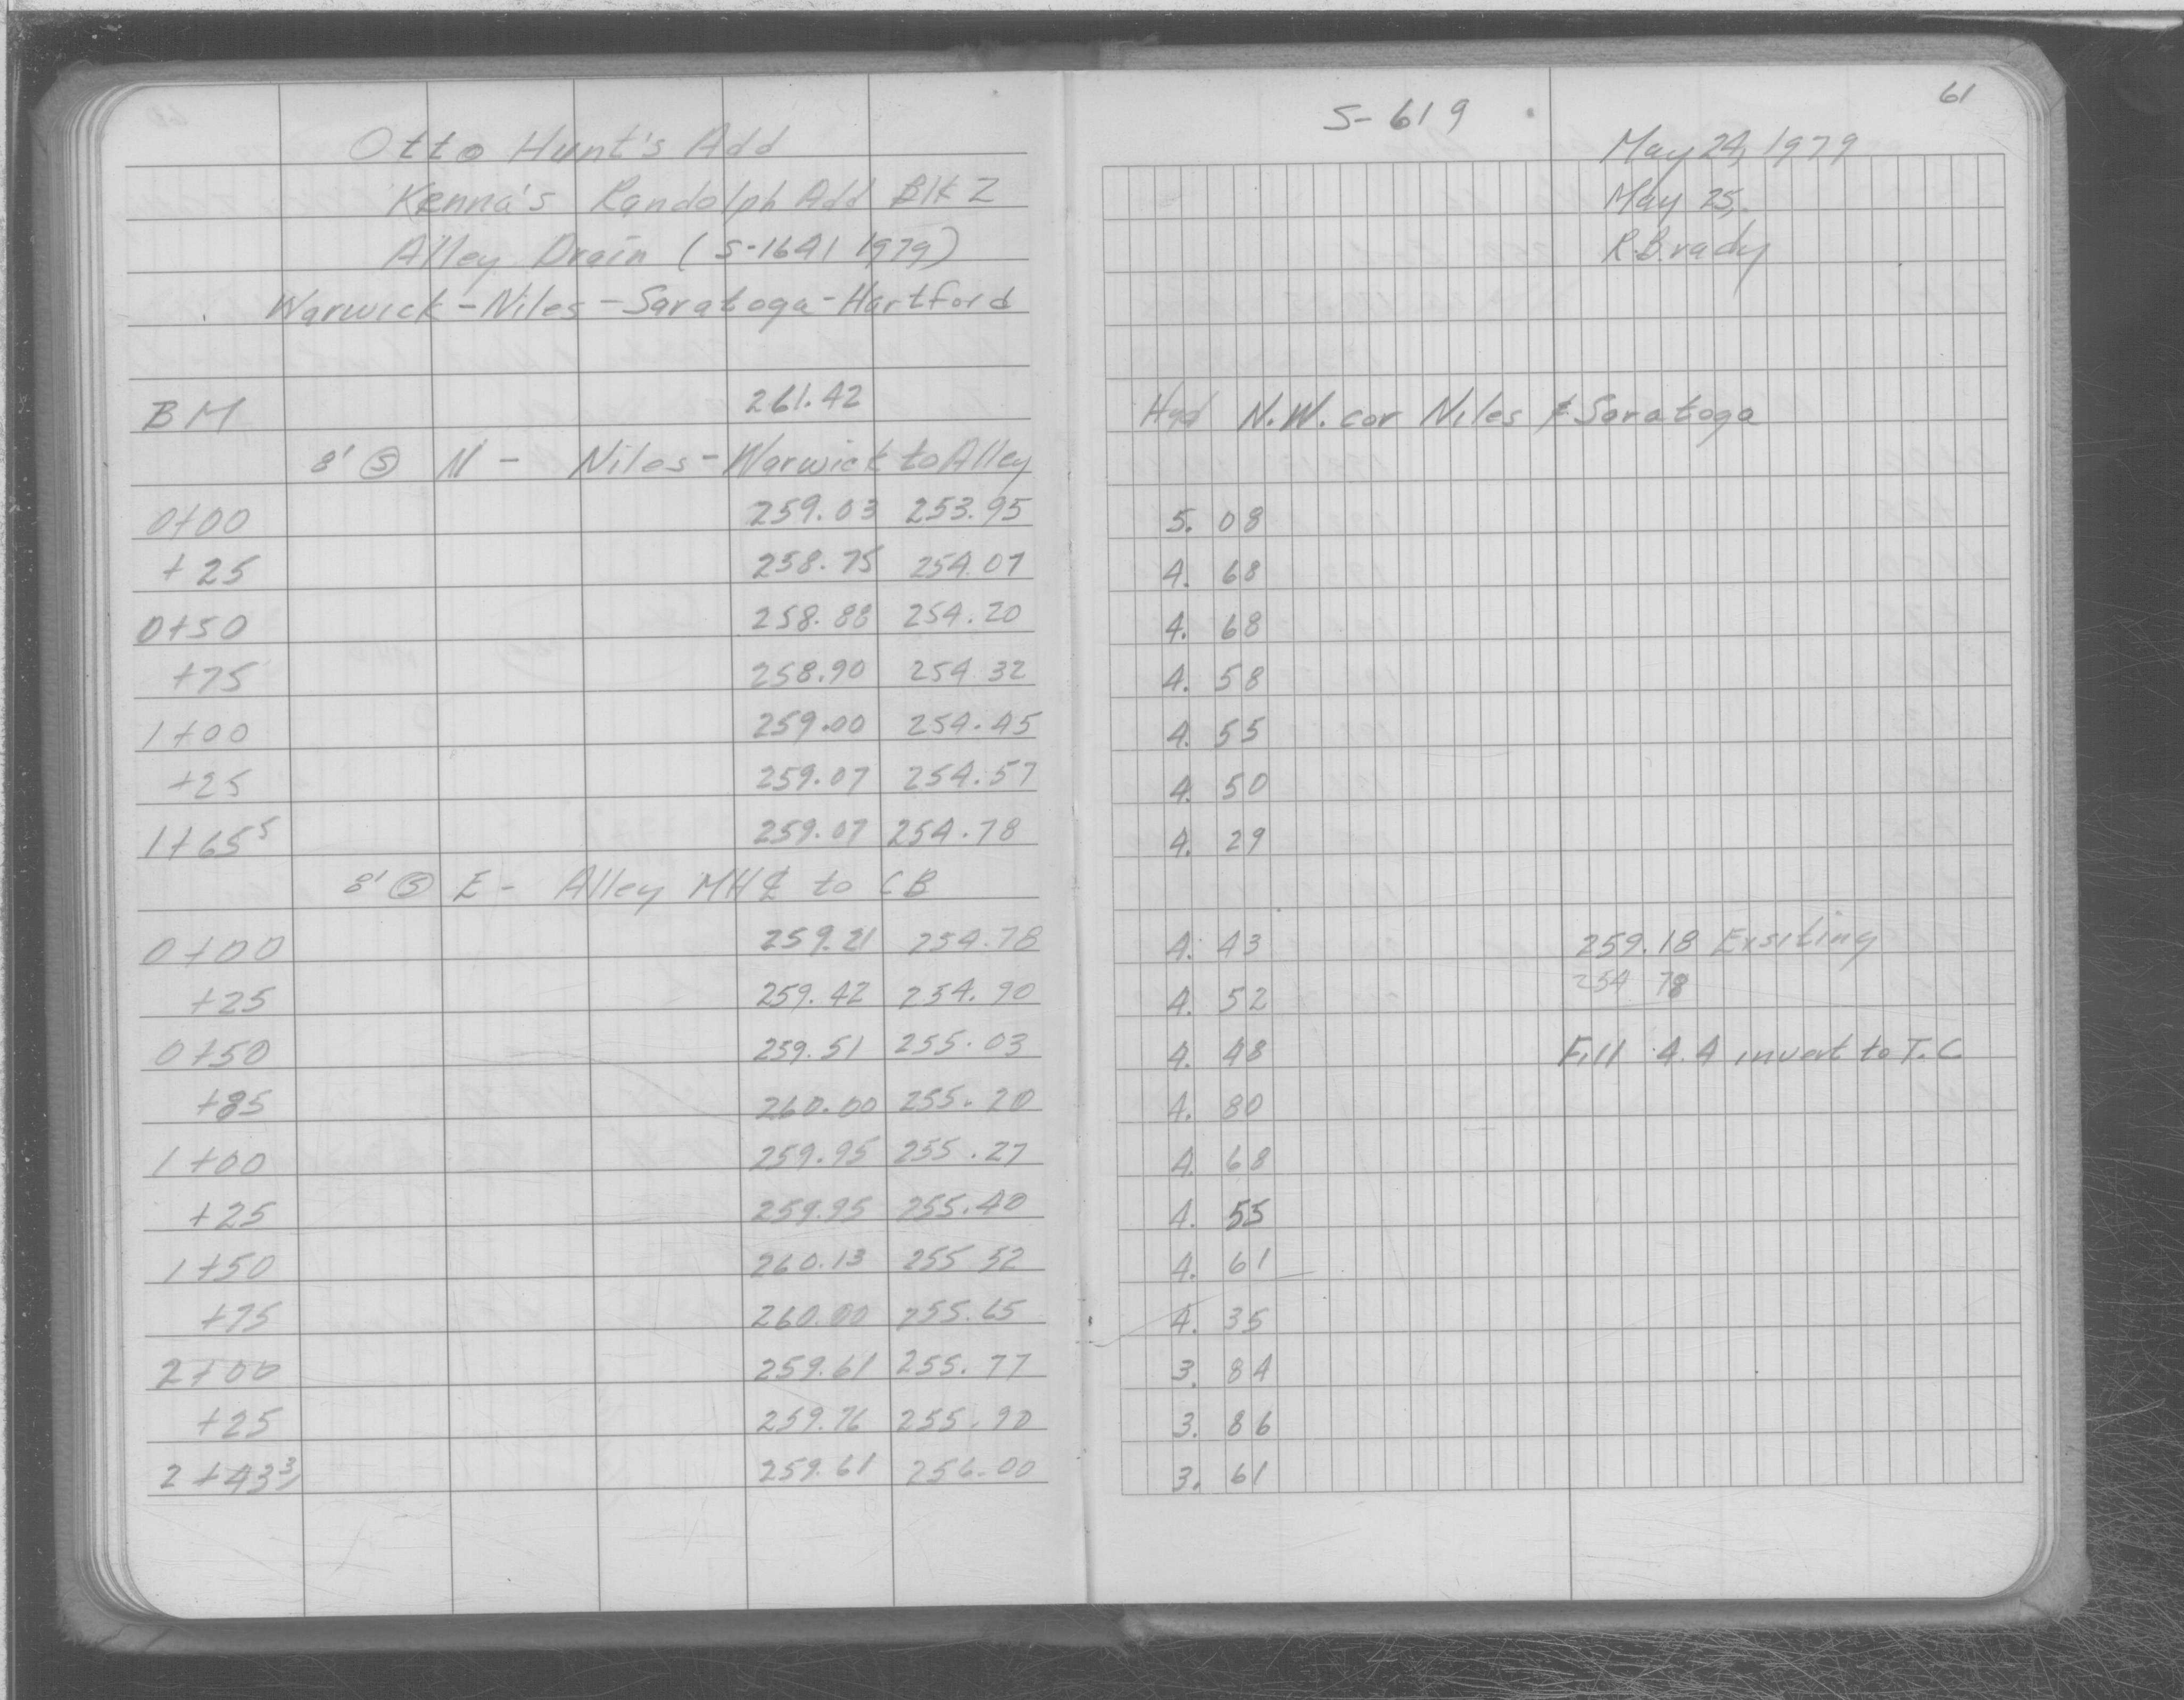 Otto Hunt's Add
Kenna's Randolph Add Blk 2
Alley Drain (S-1641 1979)
Warwick - Niles - Saratoga - Hartford
BM 261.42
8' Ⓢ N - Niles - Warwick to Alley
0+00 259.03 253.95
+25 258.75 254.07
0+50 258.88 254.20
+75 258.90 254.32
1+00 259.00 254.45
+25 259.07 254.57
1+65⁵ 259.07 254.78
8' Ⓢ E - Alley MH ₵ to CB
0+00 259.21 254.78
+25 259.42 254.90
0+50 259.51 255.03
+85 260.00 255.20
1+00 259.95 255.27
+25 259.95 255.40
1+50 260.13 255 52
+75 260.00 255.65
2+00 259.61 255.77
+25 259.76 255.90
2+43³ 259.61 256.00
61
S-619
May 24, 1979
May 25,
R.Brady
Hyd N.W. cor Niles & Saratoga
5. 08
4. 68
4. 68
4. 58
4. 55
4. 50
4. 29
4. 43 259.18 Exsiting
4. 52 254 78
4. 48 Fill 4.4 invert to T.C.
4. 80
4. 68
4. 55
4. 61
4. 35
3. 84
3. 86
3. 61